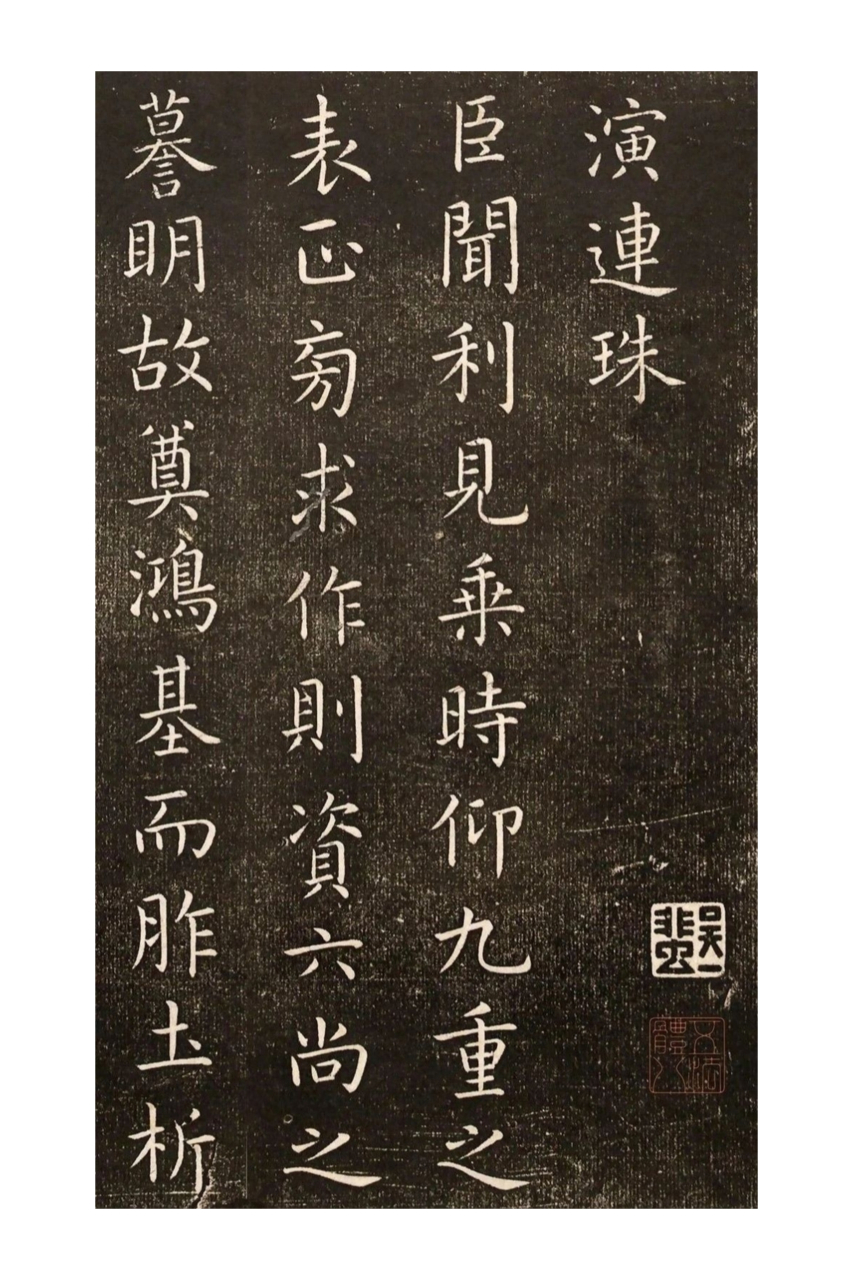 演連珠
臣聞利見乗時仰九重之
表正旁求作則資六尚之
謩明故奠鴻基而胙土析